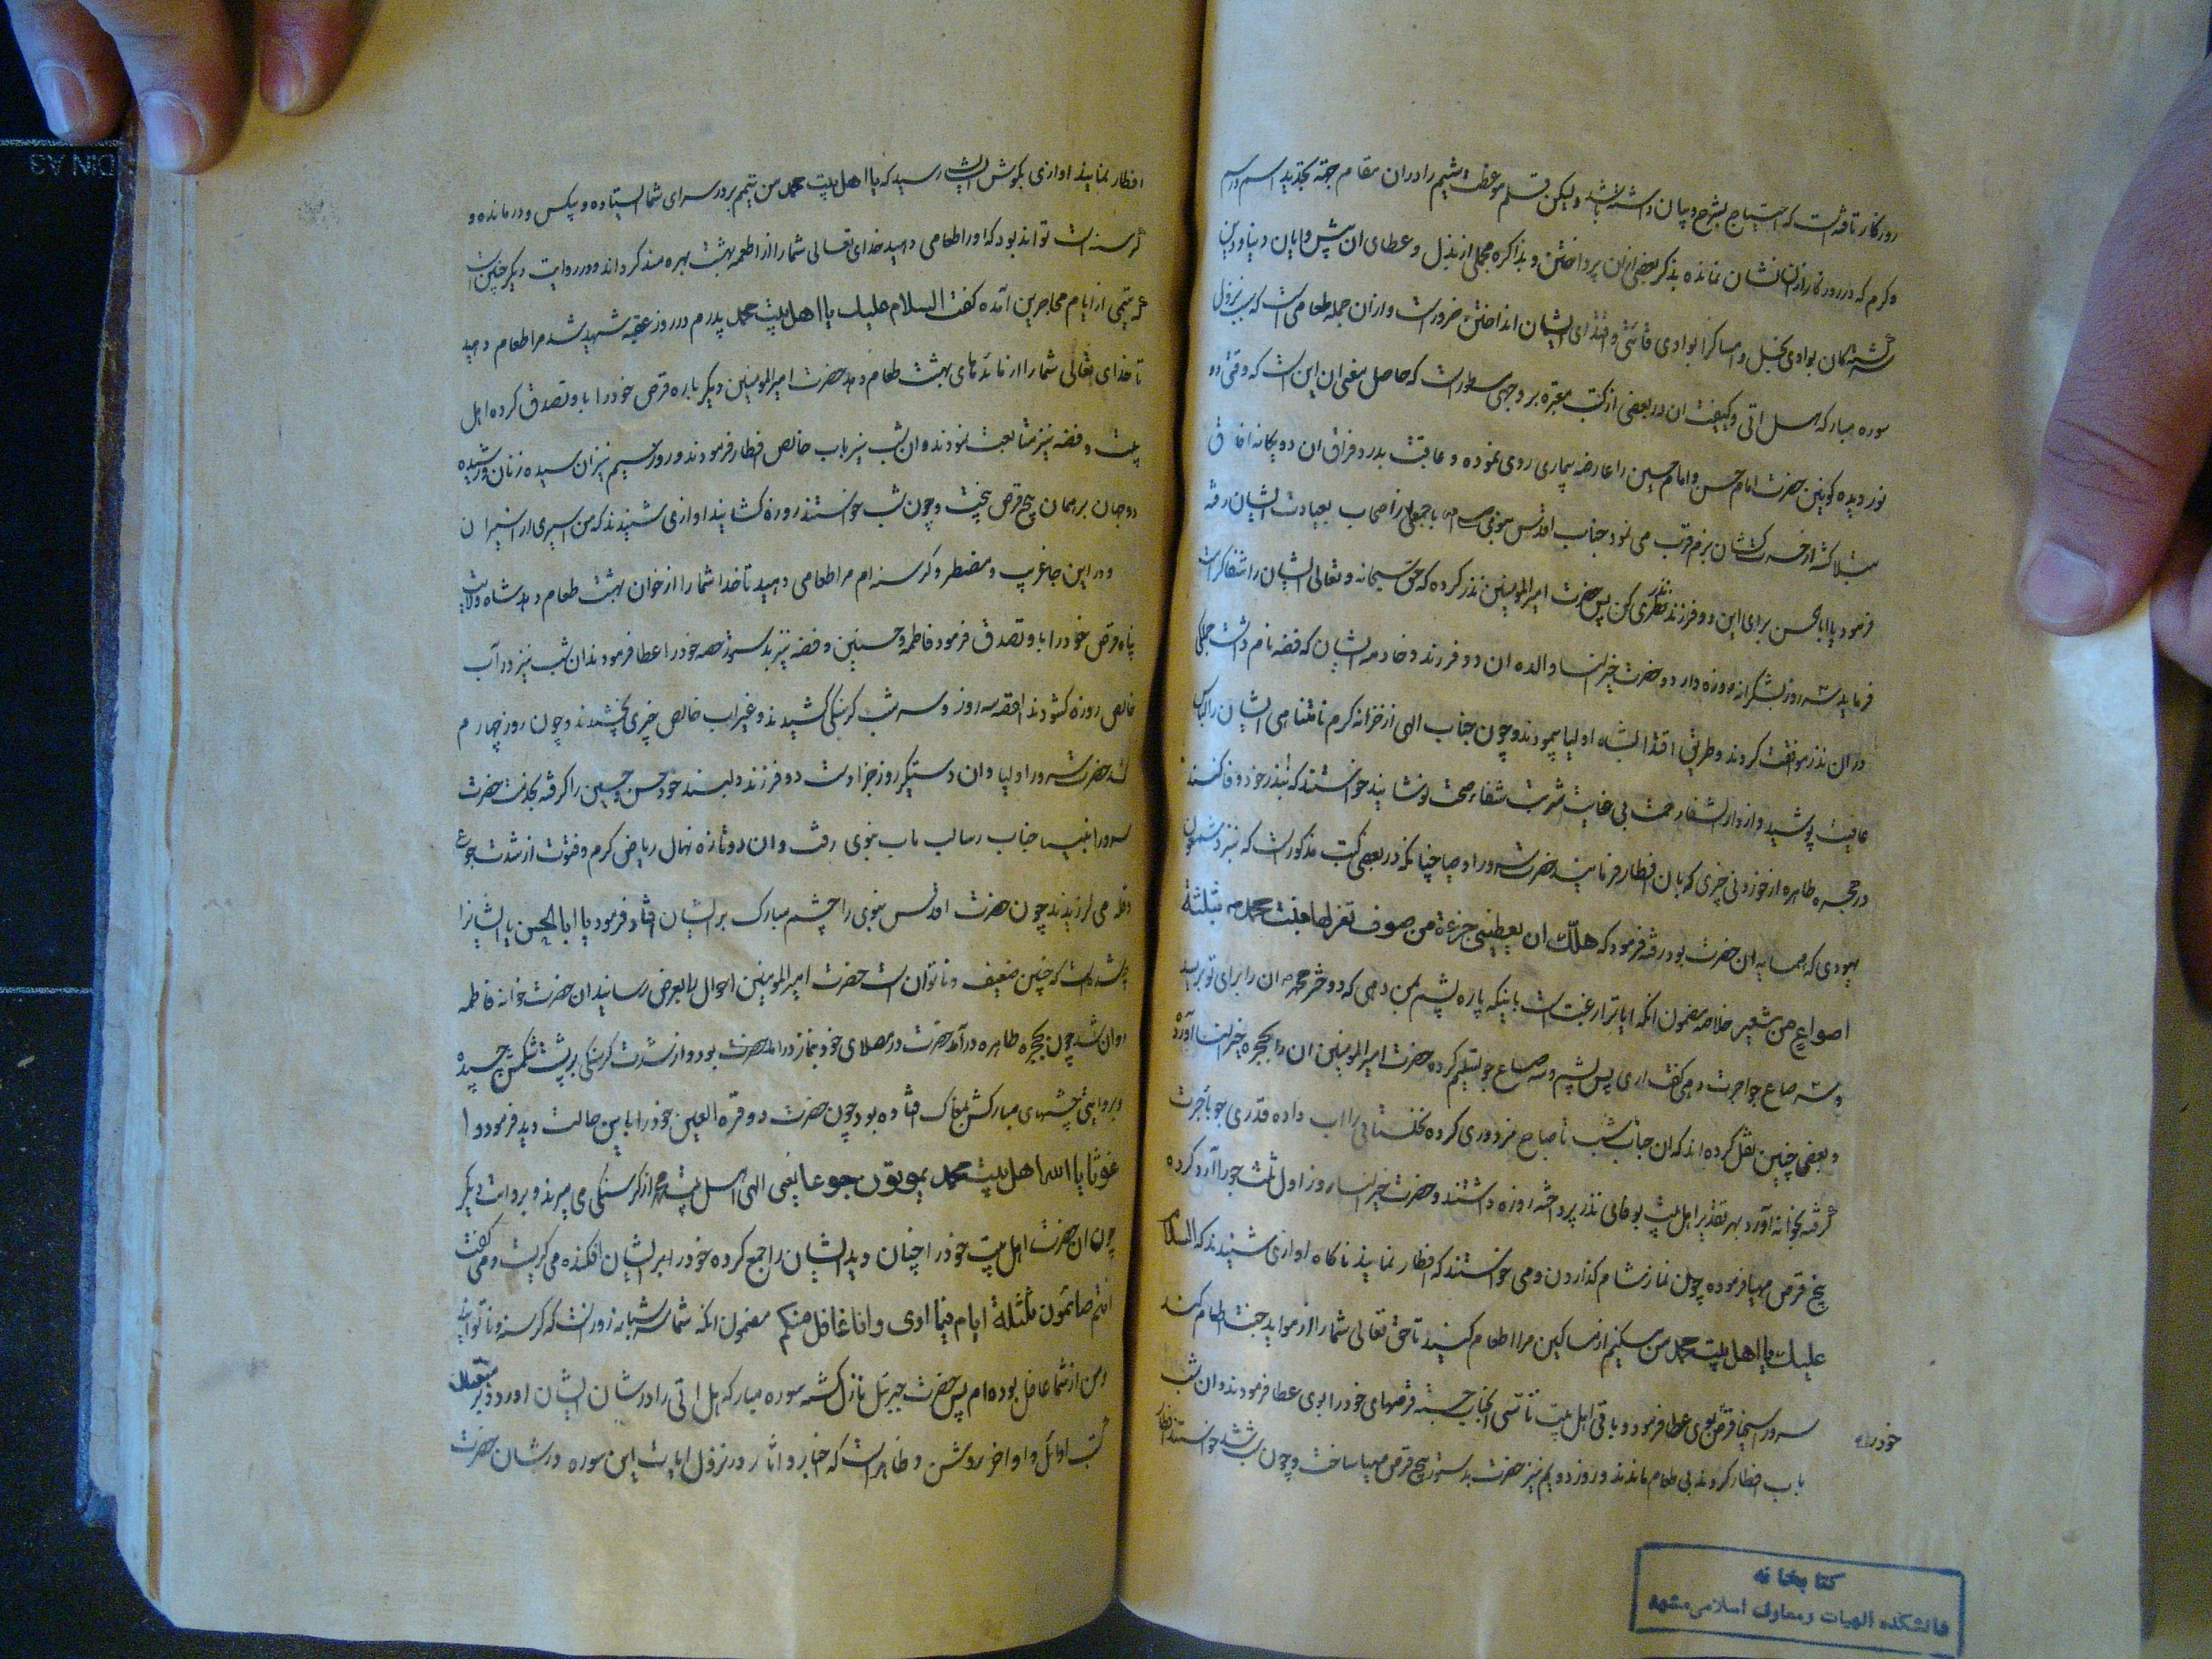 روزگار تافته است که احتیاج بشرح و بیان داشته باشد ولیکن قلم موعظت شیم را در آن مقام جهة تجدید اسم و رسم
و کرم که در روزگار از آن نشان نمانده بذکر بعضی از آن پرداختن و بذاکره مجملی از بذل و عطای آن پیشوایان دنیا و دین
سرگشتگان بوادی بخل و امساک را بوادی و اقتدای ایشان انداختن ضرورست و از آن جمله طعامی است که سبب نزول
سوره مبارکه هل اتی و کیفیت آن در بعضی از کتب معتبره بر وجهی مسطورست که حاصل معنی آن این است که وقتی دو
نور دیده کونین حضرت امام حسن و امام حسین را عارضه بیماری روی نموده و عاقبت بدرد فراق آن دو یگانه آفاق
مبتلا گشته از حسرت می نمود جناب اقدس نبوی با جمعی از اصحاب بعیادت ایشان رفته
فرمود یا ابا الحسن برای این دو فرزند نذری کن پس حضرت امیر المومنین نذر کرده که حق سبحانه و تعالی ایشان را شفا کرامت
فرماید سه روز بشکرانه روزه دارد و حضرت خیر النسا والده آن دو فرزند و خادمه ایشان که فضه نام داشت جملگی
در آن نذر موافقت کردند و طریق اقتدا بشاه اولیا پیمودند و چون جناب الهی از خزانه کرم نامتناهی ایشان را لباس
عافیت پوشید و از دار الشفاء رحمت بی غایت شربت شفا و صحت نوشانید خواستند که بنذر خود وفا کنند
در حجره طاهره از خوردنی چیزی که بآن افطار فرمایند حضرت سرور اوصیا چنانکه در بعضی کتب مذکورست که نزد شمعون
یهودی که همسایه آن حضرت بود رفته فرمود که هل لک ان یعطینی جزعة من صوف تغزلها بنت محمد ص بثلثة
اصواع من شعیر خلاصه مضمون آنکه آیا ترا رغبت است باینکه پاره پشم بمن دهی که دختر محمد ص آن را برای تو بریسد
و سه صاع جو اجرت دهی گفت آری پس پشم و سه صاع جو تسلیم کرده حضرت امیر المومنین آن را بحجره خیر النسا آورد
و بعضی چنین نقل کرده اند که آن جناب شب تا صباح مزدوری کرده نخلستانی را آب داده قدری جو باجرت
گرفته بخانه آورد بهر تقدیر اهل بیت بوفای نذر پرداخته روزه داشتند و حضرت خیر النسا روز اول ثلث جو را آرد کرده
پنج قرص مهیا فرموده چون نماز شام گذاردن و می خواستند که افطار نمایند ناگاه آوازی شنیدند که السلام
علیک یا اهل بیت محمد من مسکینم از مساکین مرا اطعام کنید تا حق تعالی شما را از مواید جنت اطعام کند
سرور اسخیا قرص بوی عطا فرمود و باقی اهل بیت تاسی بآنجناب جسته قرصهای خود را بوی عطا فرمودند و آن شب
خود را
بآب افطار کردند بی طعام ماندند و روز دویم نیز حضرت بدستور پنج قرص مهیا ساخت و چون شب شد خواستند افطار
کتابخانه
دانشکده الهیات و معارف اسلامی مشهد
افطار نمایند آوازی بگوش ایشان رسید که یا اهل بیت محمد من یتیمم بر در سرای شما ایستاده و بیکس و درمانده و
گرسنه است تواند بود که او را طعامی دهید خدای تعالی شما را از اطعمه بهشت بهره مند گرداند و در روایت دیگر چنین است
که یتیمی از ایتام مهاجرین آمده گفت السلام علیک یا اهل بیت محمد پدرم در روز عقبه شهید شد مرا طعام دهید
تا خدای تعالی شما را از مائدهای بهشت طعام دهد حضرت امیر المومنین دیگر باره قرص خود را باو تصدق کرده اهل
بیت و فضه نیز متابعت نمودند و آن شب نیز بآب خالص افطار فرمودند و روز سیم نیز آن سیده زنان
دو جهان بر همان پنج قرص پخت و چون شب خواستند روزه گشایند آوازی شنیدند که من اسیری از اسیران
و در این جا غریب و مضطر و گرسنه ام مرا طعامی دهید تا خدا شما را از خوان بهشت طعام دهد شاه ولایت
پناه قرص خود را باو تصدق فرمود فاطمه و حسنین و فضه نیز بدستور حصه خود را عطا فرمودند آن شب نیز در آب
خالص روزه گشودند القصه سه روز و سه شب گرسنگی کشیدند و غیر آب خالص چیزی نچشیدند و چون روز چهارم
شد حضرت سرور اولیا و آن دستگیر روز جزا دست دو فرزند دلبند خود حسن و حسین را گرفته بخدمت حضرت
سرور انبیا جناب رسالت مآب نبوی رفت و آن دو تازه نهال ریاض کرم و فتوت از شدت جوع
می لرزیدند چون حضرت اقدس نبوی را چشم مبارک بر ایشان افتاد فرمود یا ابا الحسن ایشانرا
چه شده است که چنین ضعیف و ناتوان است حضرت امیر المومنین احوال را بعرض رسانید آن حضرت خانه فاطمه
روان شد چون بحجره طاهره درآمد حضرت در مصلای خود بنماز در آمد حضرت بود و از شدت گرسنگی بر پشت شکمش چسپیده
و بروایتی چشمهای مبارکش بمغاک افتاده بود چون حضرت دو قرة العین خود را باین حالت دید فرمود وا
غوثا یا الله اهل بیت محمد یموتون جوعا یعنی الهی اهل بیت محمد از گرسنگی می میرند و بروایت دیگر
چون آن حضرت اهل بیت خود را چنان دید ایشان را جمع کرده خود را بر ایشان افکنده می گریست و می گفت
انتم صائمون ثلثة ایام فیما اری و انا غافل منکم مضمون آنکه شما سه شبانه روز است که گرسنه و ناتوانید
و من از شما غافل بوده ام پس حضرت جبرئیل نازل گشته سوره مبارکه هل اتی را در شان ایشان آورد و بر متتبعان
کتب اوائل و اواخر روشن و ظاهرست که اخبار و آثار در نزول آیات این سوره در شان حضرت